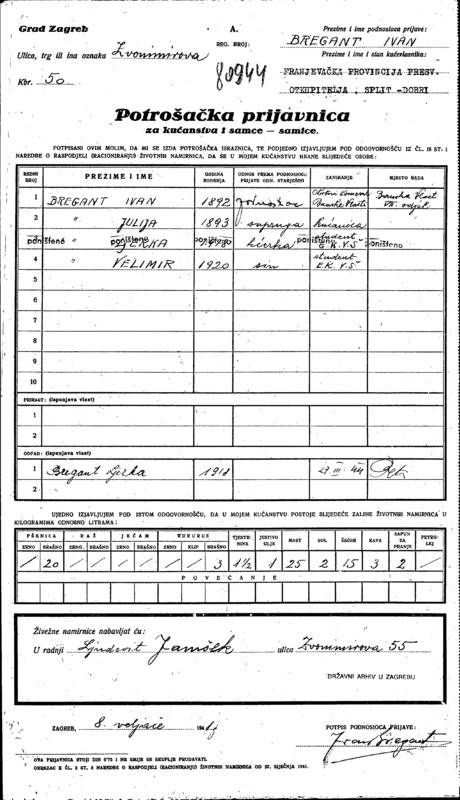 Grad Zagreb
A.
Prezime i ime podnosioca prijave:
BREGANT IVAN
Ulica, trg ili ina oznaka Zvonimirova
REG. BROJ:
Prezime i ime i stan kućevlasnika:
Kbr. 50
80944
FRANJEVAČKA PROVINCIJA PRESV.
OTKUPITELJA, SPLIT-DOBRI
Potrošačka prijavnica
za kućanstva i samce — samice.
POTPISANI OVIM MOLIM, DA MI SE IZDA POTROŠAČKA ISKAZNICA, TE PODJEDNO IZJAVLJUJEM POD ODGOVORNOŠĆU IZ ČL. 18 ST. 1
NAREDBE O RASPODJELI (RACIONIRANJU) ŽIVOTNIH NAMIRNICA, DA SE U MOJEM KUĆANSTVU HRANE SLIJEDEĆE OSOBE:
REDNI BROJ PREZIME I IME GODINA ROĐENJA ODNOS PREMA PODNOSIOCU PRIJAVE ODN. STARJEŠINI ZANIMANJE MJESTO RADA
1 BREGANT IVAN 1892 Banske Vlasti Banska Vlast
2 " JULIJA 1893 supruga kućanica
poništeno poništeno poništeno kćerka poništeno student poništeno
4 " VELIMIR 1920 sin student
E.K.V.Š
5
6
7
8
9
10
PRIRAST: (ispunjava vlast)
1
2
OTPAD: (ispunjava vlast)
1 Bregant 1918 27 III 44
2
UJEDNO IZJAVLJUJEM POD ISTOM ODGOVORNOŠĆU, DA U MOJEM KUĆANSTVU POSTOJE SLIJEDEĆE ZALIHE ŽIVOTNIH NAMIRNICA U
KILOGRAMIMA ODNOSNO LITRAMA:
PŠENICA RAŽ JEČAM KUKURUZ TJESTENINE JESTIVO ULJE MAST SOL ŠEĆER KAVA SAPUN ZA PRANJE PETROLEJ
ZRNO BRAŠNO ZRNO BRAŠNO ZRNO BRAŠNO ZRNO KLIP BRAŠNO
/ 20 / / / / / / 3 1½ 1 25 2 15 3 2 /
POVEĆANJE
Živežne namirnice nabavljat ću:
U radnji Ljudevit ulica Zvonimirova 55
DRŽAVNI ARHIV U ZAGREBU
ZAGREB, 8. veljače 194
POTPIS PODNOSIOCA PRIJAVE:
Ivan Bregant
OVA PRIJAVNICA STOJI DIN 0'75 I NE SMIJE SE SKUPLJE PRODAVATI.
OBRAZAC K ČL. 3 ST. 3 NAREDBE O RASPODJELI (RACIONIRANJU) ŽIVOTNIH NAMIRNICA OD 27. SIJEČNJA 1941.